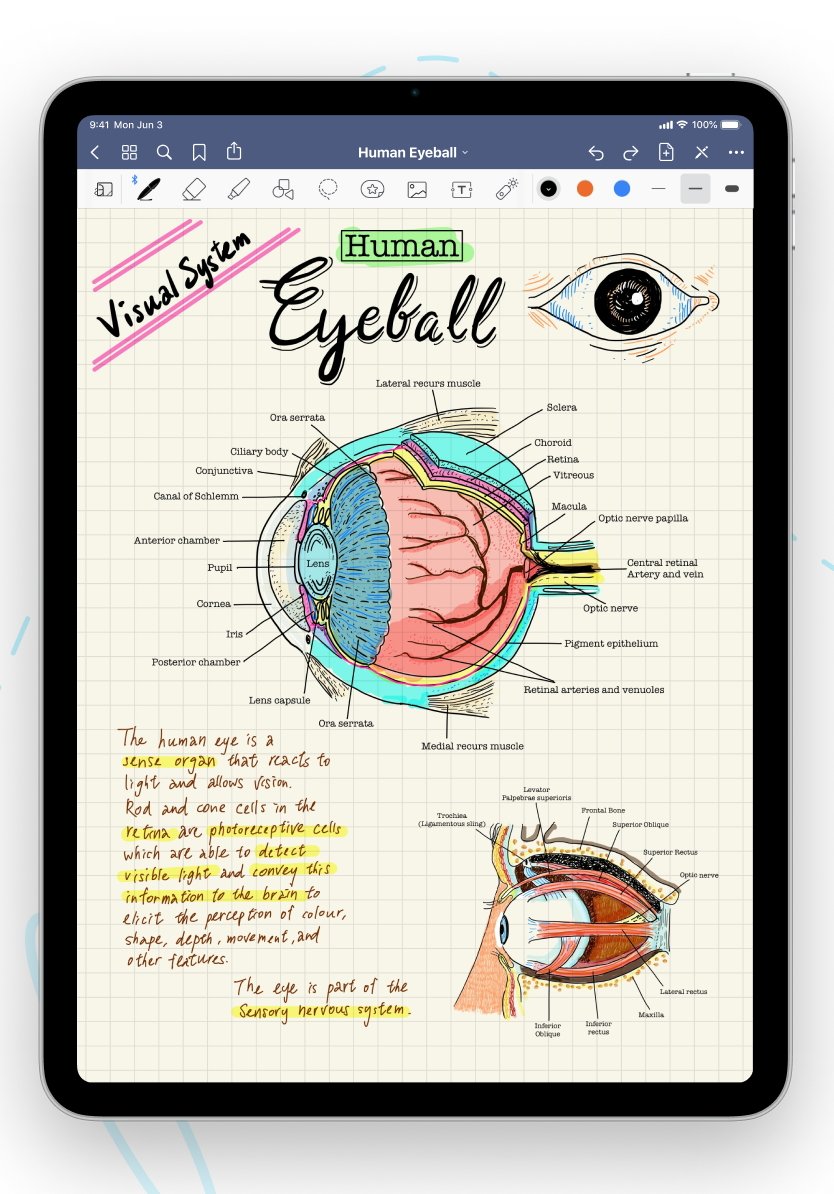 9:41 Mon Jun 3
100%
Human Eyeball
Visual System
Human
Eyeball
Lateral recurs muscle
Ora serrata
Sclera
Ciliary body
Choroid
Conjunctiva
Retina
Vitreous
Canal of Schlemm
Macula
Optic nerve papilla
Anterior chamber
Pupil
Lens
Central retinal
Artery and vein
Cornea
Optic nerve
Iris
Pigment epithelium
Posterior chamber
Retinal arteries and venuoles
Lens capsule
Ora serrata
Medial recurs muscle
The human eye is a
sense organ that reacts to
light and allows vision.
Rod and cone cells in the
retina are photoreceptive cells
which are able to detect
visible light and convey this
information to the brain to
elicit the perception of colour,
shape, depth, movement, and
other features.
The eye is part of the
Sensory nervous system.
Levator
Palpebrae superioris
Frontal Bone
Trochlea
(Ligamentous sling)
Superior Oblique
Superior Rectus
Optic nerve
Lateral rectus
Maxilla
Inferior
Oblique
Inferior
rectus